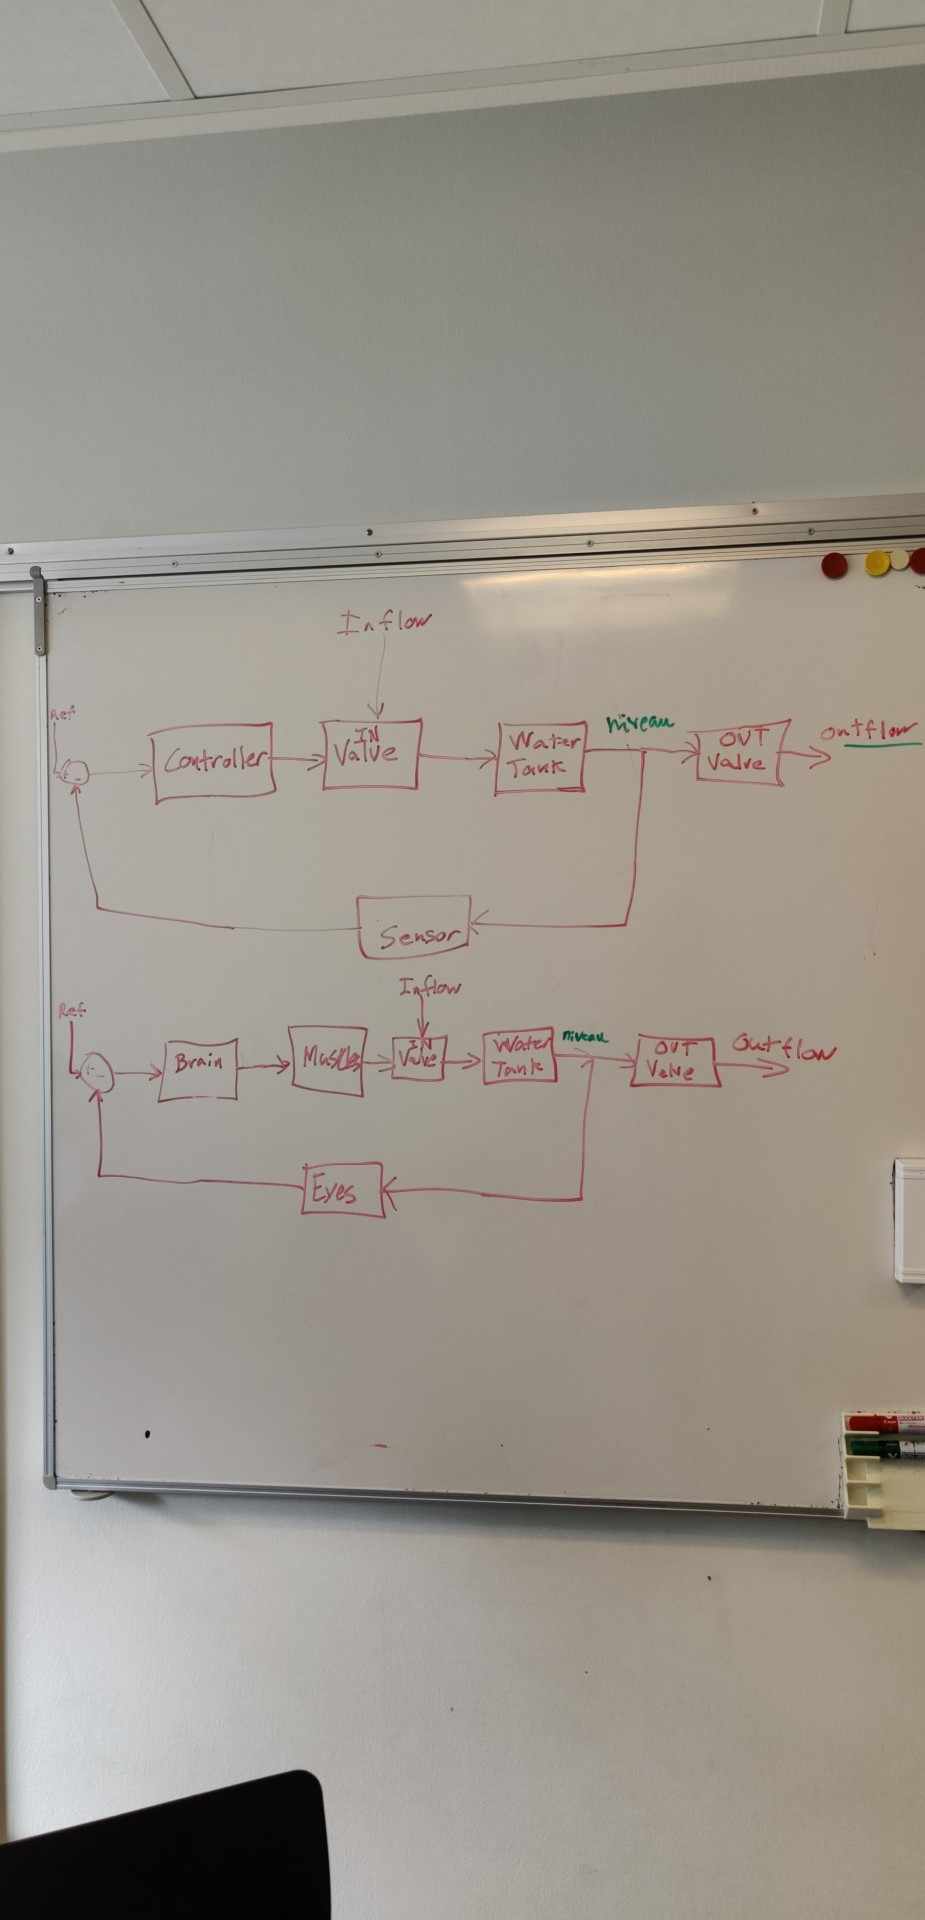 Inflow
Ref
+
-
Controller
IN
Valve
Water
Tank
niveau
OUT
Valve
outflow
Sensor
Inflow
Ref
+
-
Brain
Muscles
IN
Valve
Water
Tank
niveau
OUT
Valve
Outflow
Eyes